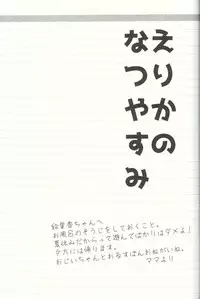 えりかの
なつやすみ
絵里香ちゃんへ
お風呂のそうじをしておくこと。
夏休みだからって遊んでばかりはダメよ!
夕方には帰ります。
おじいちゃんとおるすばんおねがいね。
ママより